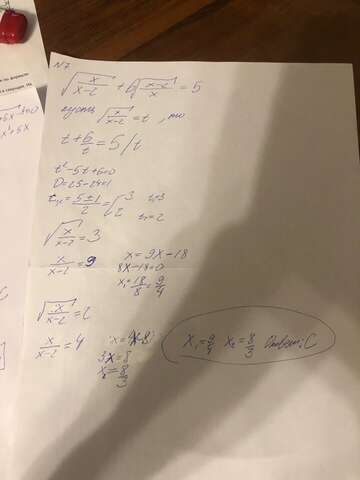 N7
√(x/(x-2)) + 6√((x-2)/x) = 5
пусть √(x/(x-2)) = t, то
t + 6/t = 5 /t
t² - 5t + 6 = 0
D = 25 - 24 = 1
t₁,₂ = (5 ± 1)/2 = 3 t₁ = 3
2 t₂ = 2
√(x/(x-2)) = 3
x/(x-2) = 9
x = 9x - 18
8x - 18 = 0
x₁ = 18/8 = 9/4
√(x/(x-2)) = 2
x/(x-2) = 4
x = 4x - 8
3x = 8
x₂ = 8/3
x₁ = 9/4 x₂ = 8/3 Ответ: C